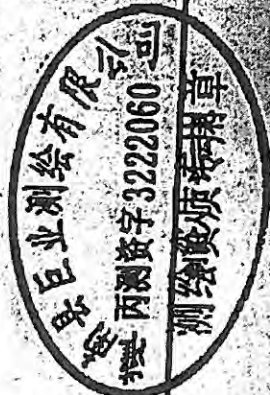 县巨业测绘有限公司
丙测资字 3222060
测绘资质专用章